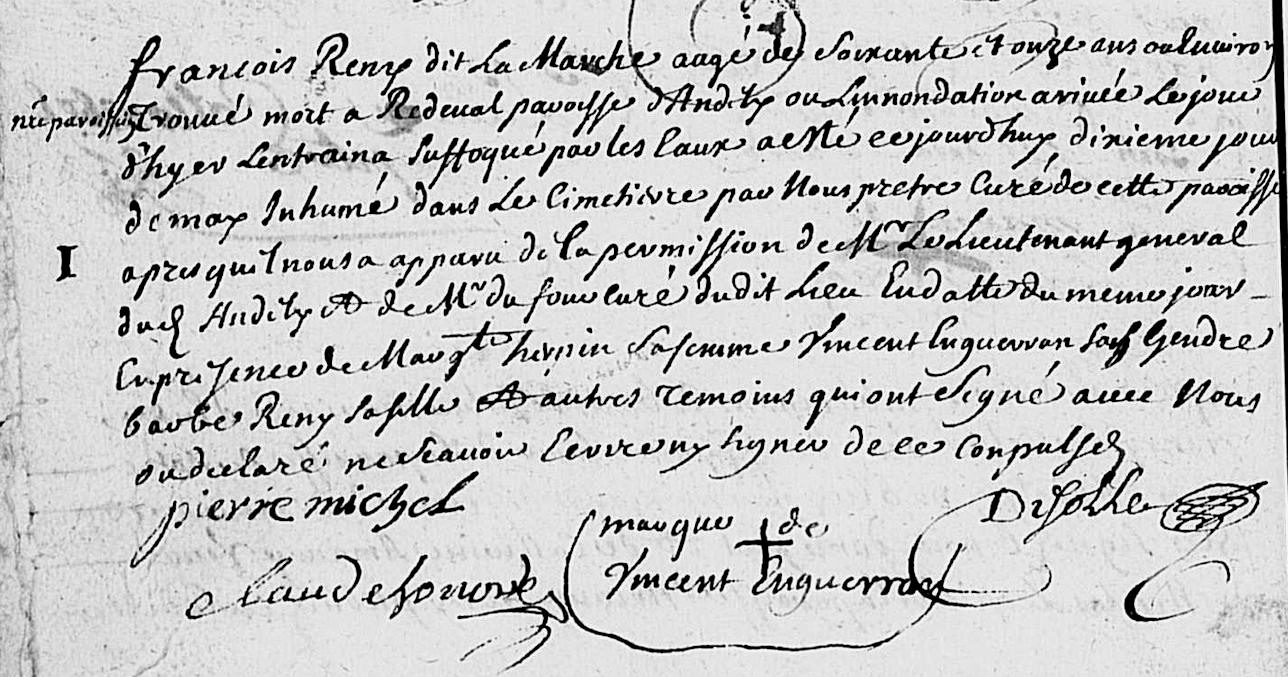 françois Remy dit La Marche aagé de Soixante et onze ans ou Environ
nre paroissien
Trouvé mort a Redeval paroisse d'Andilly ou L'innondation arivée Le jour
d'hyer Lentraina suffoqué par les Eaux a esté ce jourd'huy dixieme jour
de may Inhumé dans Le Cimetierre par Nous pretre Curé de cette paroisse
apres quil nous a apparu de la permission de Mr Le Lieutenant general
dud Andilly Et de Mr du four curé dudit Lieu En datte du meme jour
En presence de Margte herpin Sa femme Vincent Enguerran son Gendre
barbe Remy sa fille Et autres Temoins qui ont Signé avec Nous
ou declaré ne scavoir Ecrire ny signer de ce Conpulsed
pierre michel
marque de
Claude honoré
Vincent Enguerran